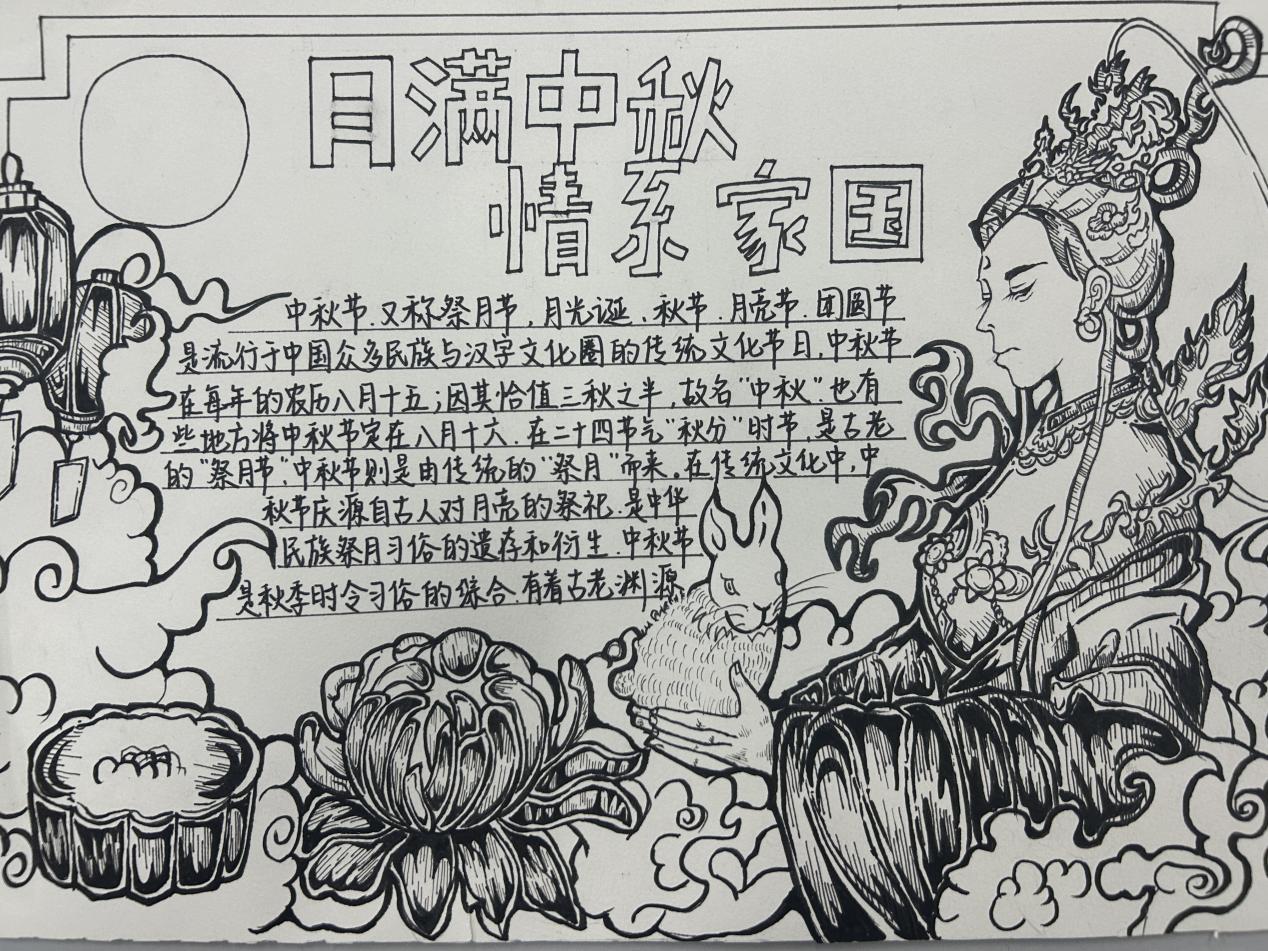 月满中秋
情系家国
中秋节.又称祭月节,月光诞.秋节.月亮节.团圆节
是流行于中国众多民族与汉字文化圈的传统文化节日.中秋节
在每年的农历八月十五;因其恰值三秋之半,故名"中秋".也有
些地方将中秋节定在八月十六.在二十四节气"秋分"时节,是古老
的"祭月节".中秋节则是由传统的"祭月"而来。在传统文化中,中
秋节庆源自古人对月亮的祭祀.是中华
民族祭月习俗的遗存和衍生.中秋节
是秋季时令习俗的综合.有着古老渊源